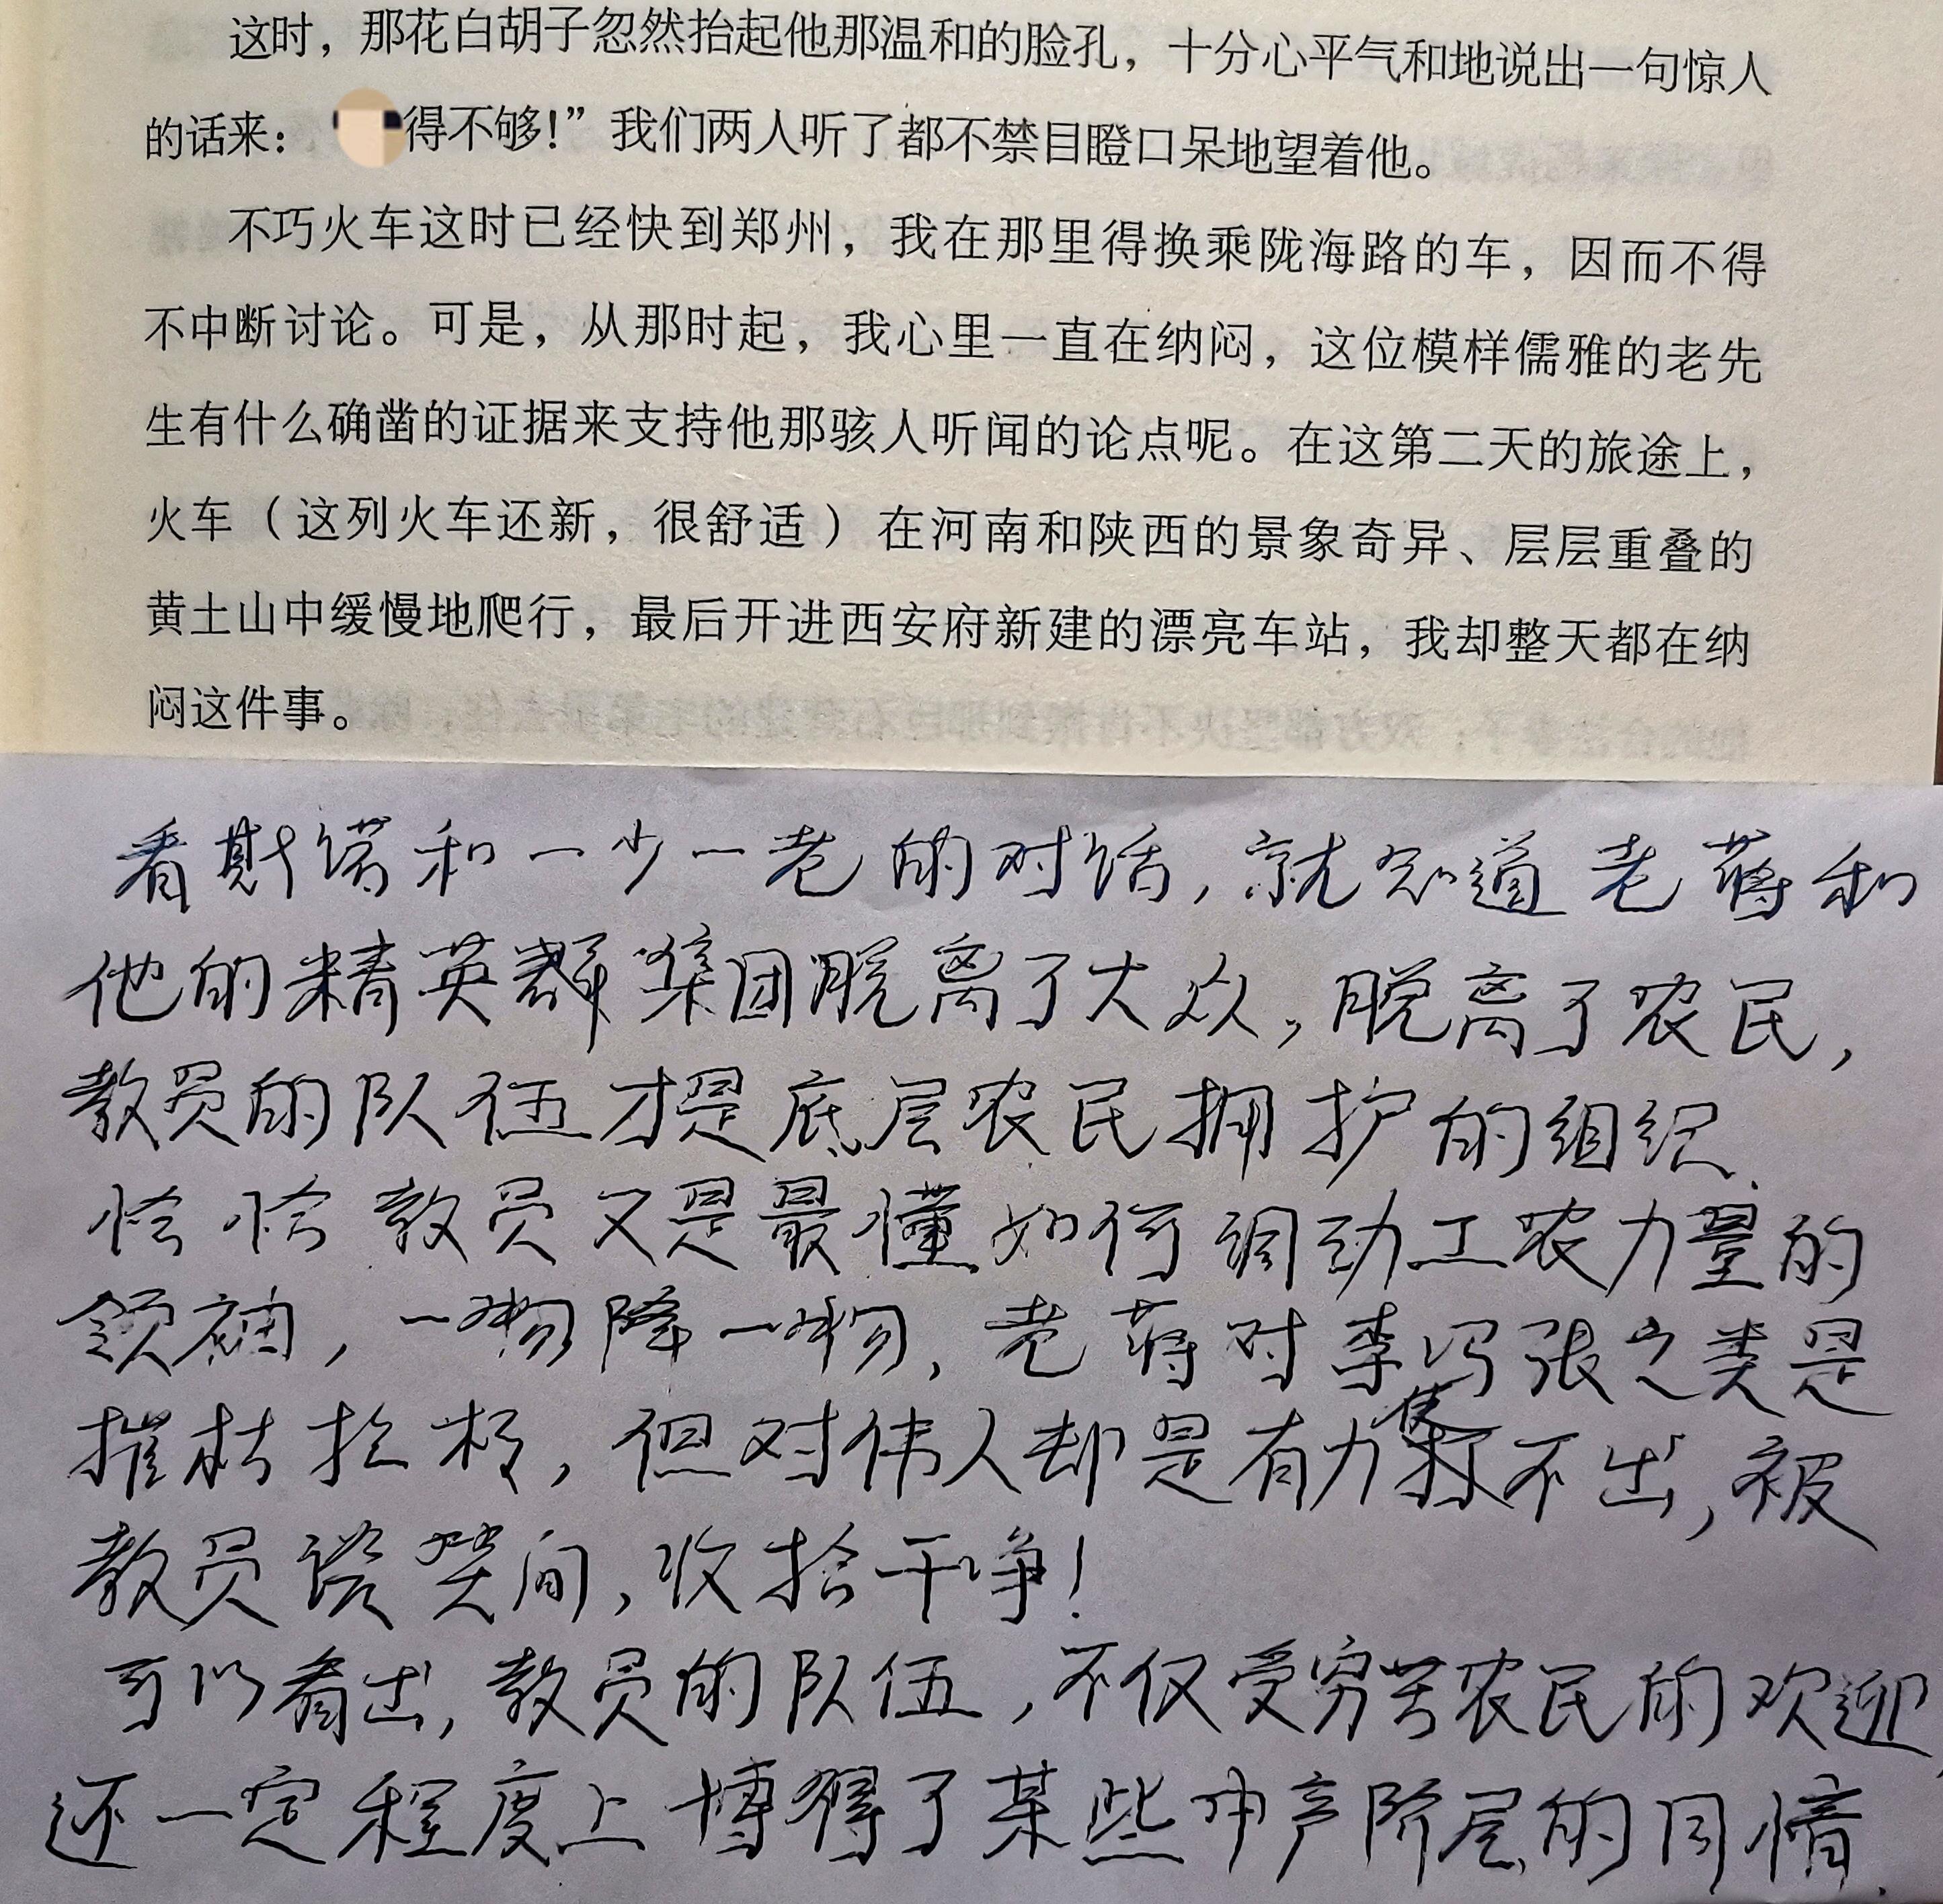 这时，那花白胡子忽然抬起他那温和的脸孔，十分心平气和地说出一句惊人
的话来：得不够！”我们两人听了都不禁目瞪口呆地望着他。
不巧火车这时已经快到郑州，我在那里得换乘陇海路的车，因而不得
不中断讨论。可是，从那时起，我心里一直在纳闷，这位模样儒雅的老先
生有什么确凿的证据来支持他那骇人听闻的论点呢。在这第二天的旅途上，
火车（这列火车还新，很舒适）在河南和陕西的景象奇异、层层重叠的
黄土山中缓慢地爬行，最后开进西安府新建的漂亮车站，我却整天都在纳
闷这件事。
看斯诺和一少一老的对话，就知道老蒋和
他的精英群集团脱离了大众，脱离了农民，
教员的队伍才是底层农民拥护的组织.
恰恰教员又是最懂如何调动工农力量的
领袖，一物降一物，老蒋对李冯张之类是
摧枯拉朽，但对伟人却是有力使不出，被
教员谈笑间，收拾干净！
可以看出，教员的队伍，不仅受穷苦农民的欢迎，
还一定程度上博得了某些中产阶层的同情.